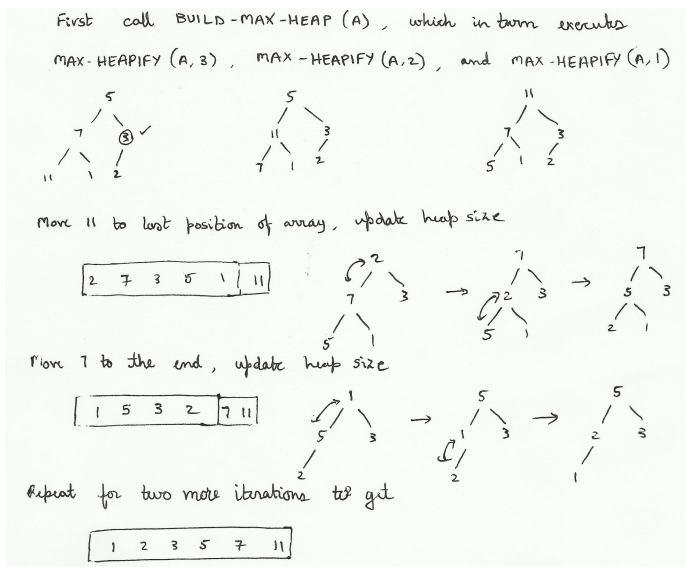 First call BUILD-MAX-HEAP (A), which in turn executes
MAX-HEAPIFY (A, 3), MAX-HEAPIFY (A,2), and MAX-HEAPIFY (A,1)
5 5 11
7 3 ✓ 11 3 7 3
11 1 2 7 1 2 5 1 2
Move 11 to last position of array, update heap size
2 7 3 5 1 11
2 → 7 → 7
7 3 2 3 5 3
5 1 5 1 2 1
Move 7 to the end, update heap size
1 5 3 2 7 11
1 → 5 → 5
5 3 1 3 2 3
2 2 1
Repeat for two more iterations to get
1 2 3 5 7 11